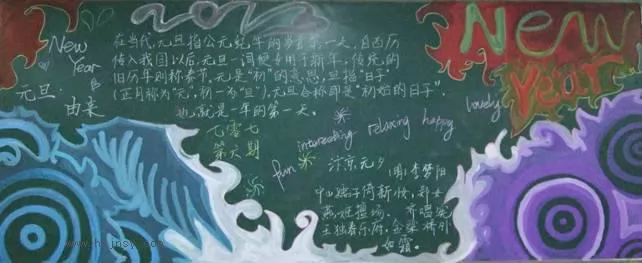 New
Year
元旦.
由来
在当代,元旦指公元纪年的岁首第一天,自西历
传入我国以后,元旦一词便专用于新年,传统的
旧历年则称春节,元是"初"的意思,旦指"日子"
(正月称为"元",初一为"旦"),元旦合称即是"初始的日子".
也就是一年的第一天。
New
Year
第六期
fun interesting relaxing happy lovely
汴京元夕
(明)李梦阳
中山孺子倚新妆,郑女
燕姬擅场.齐唱宪
王独春乐府,金梁桥外
如霜.